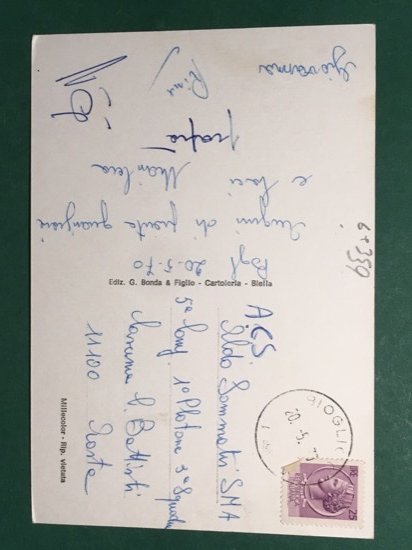 Giovanna
Rina
e baci Marilena
Auguri di pronta guarigione
20-5-70
Ediz. G. Bonda & Figlio - Cartoleria - Biella
A.C.S.
Aldo Sammati SMA
5ª Comp. 1º Plotone 3ª Squadra
Caserma C. Battisti
11100 Aosta
Millecolor - Rip. vietata
BIOGLIO
20.5.
25